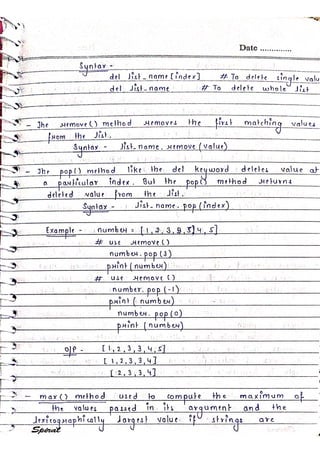 Date ..............
Syntax -
del list_name [index] # To delete single valu
del list_name # To delete whole list
- The remove() method removes the first matching values
from the list.
Syntax - list_name. remove (value)
- The pop() method like the del keyword deletes value at
a particular index. But the pop() method returns
deleted value from the list.
Syntax - list_name. pop (index)
Example - number = [1, 2, 3, 3, 4, 5]
# use remove()
number. pop (3)
print (number)
# use remove ()
number. pop (-1)
print ( number)
number. pop (0)
print (number)
o/p - [1, 2, 3, 3, 4, 5]
[1, 2, 3, 3, 4]
[2, 3, 3, 4]
- max() method used to compute the maximum of
the values passed in its argument and the
lexicographically largest value if strings are